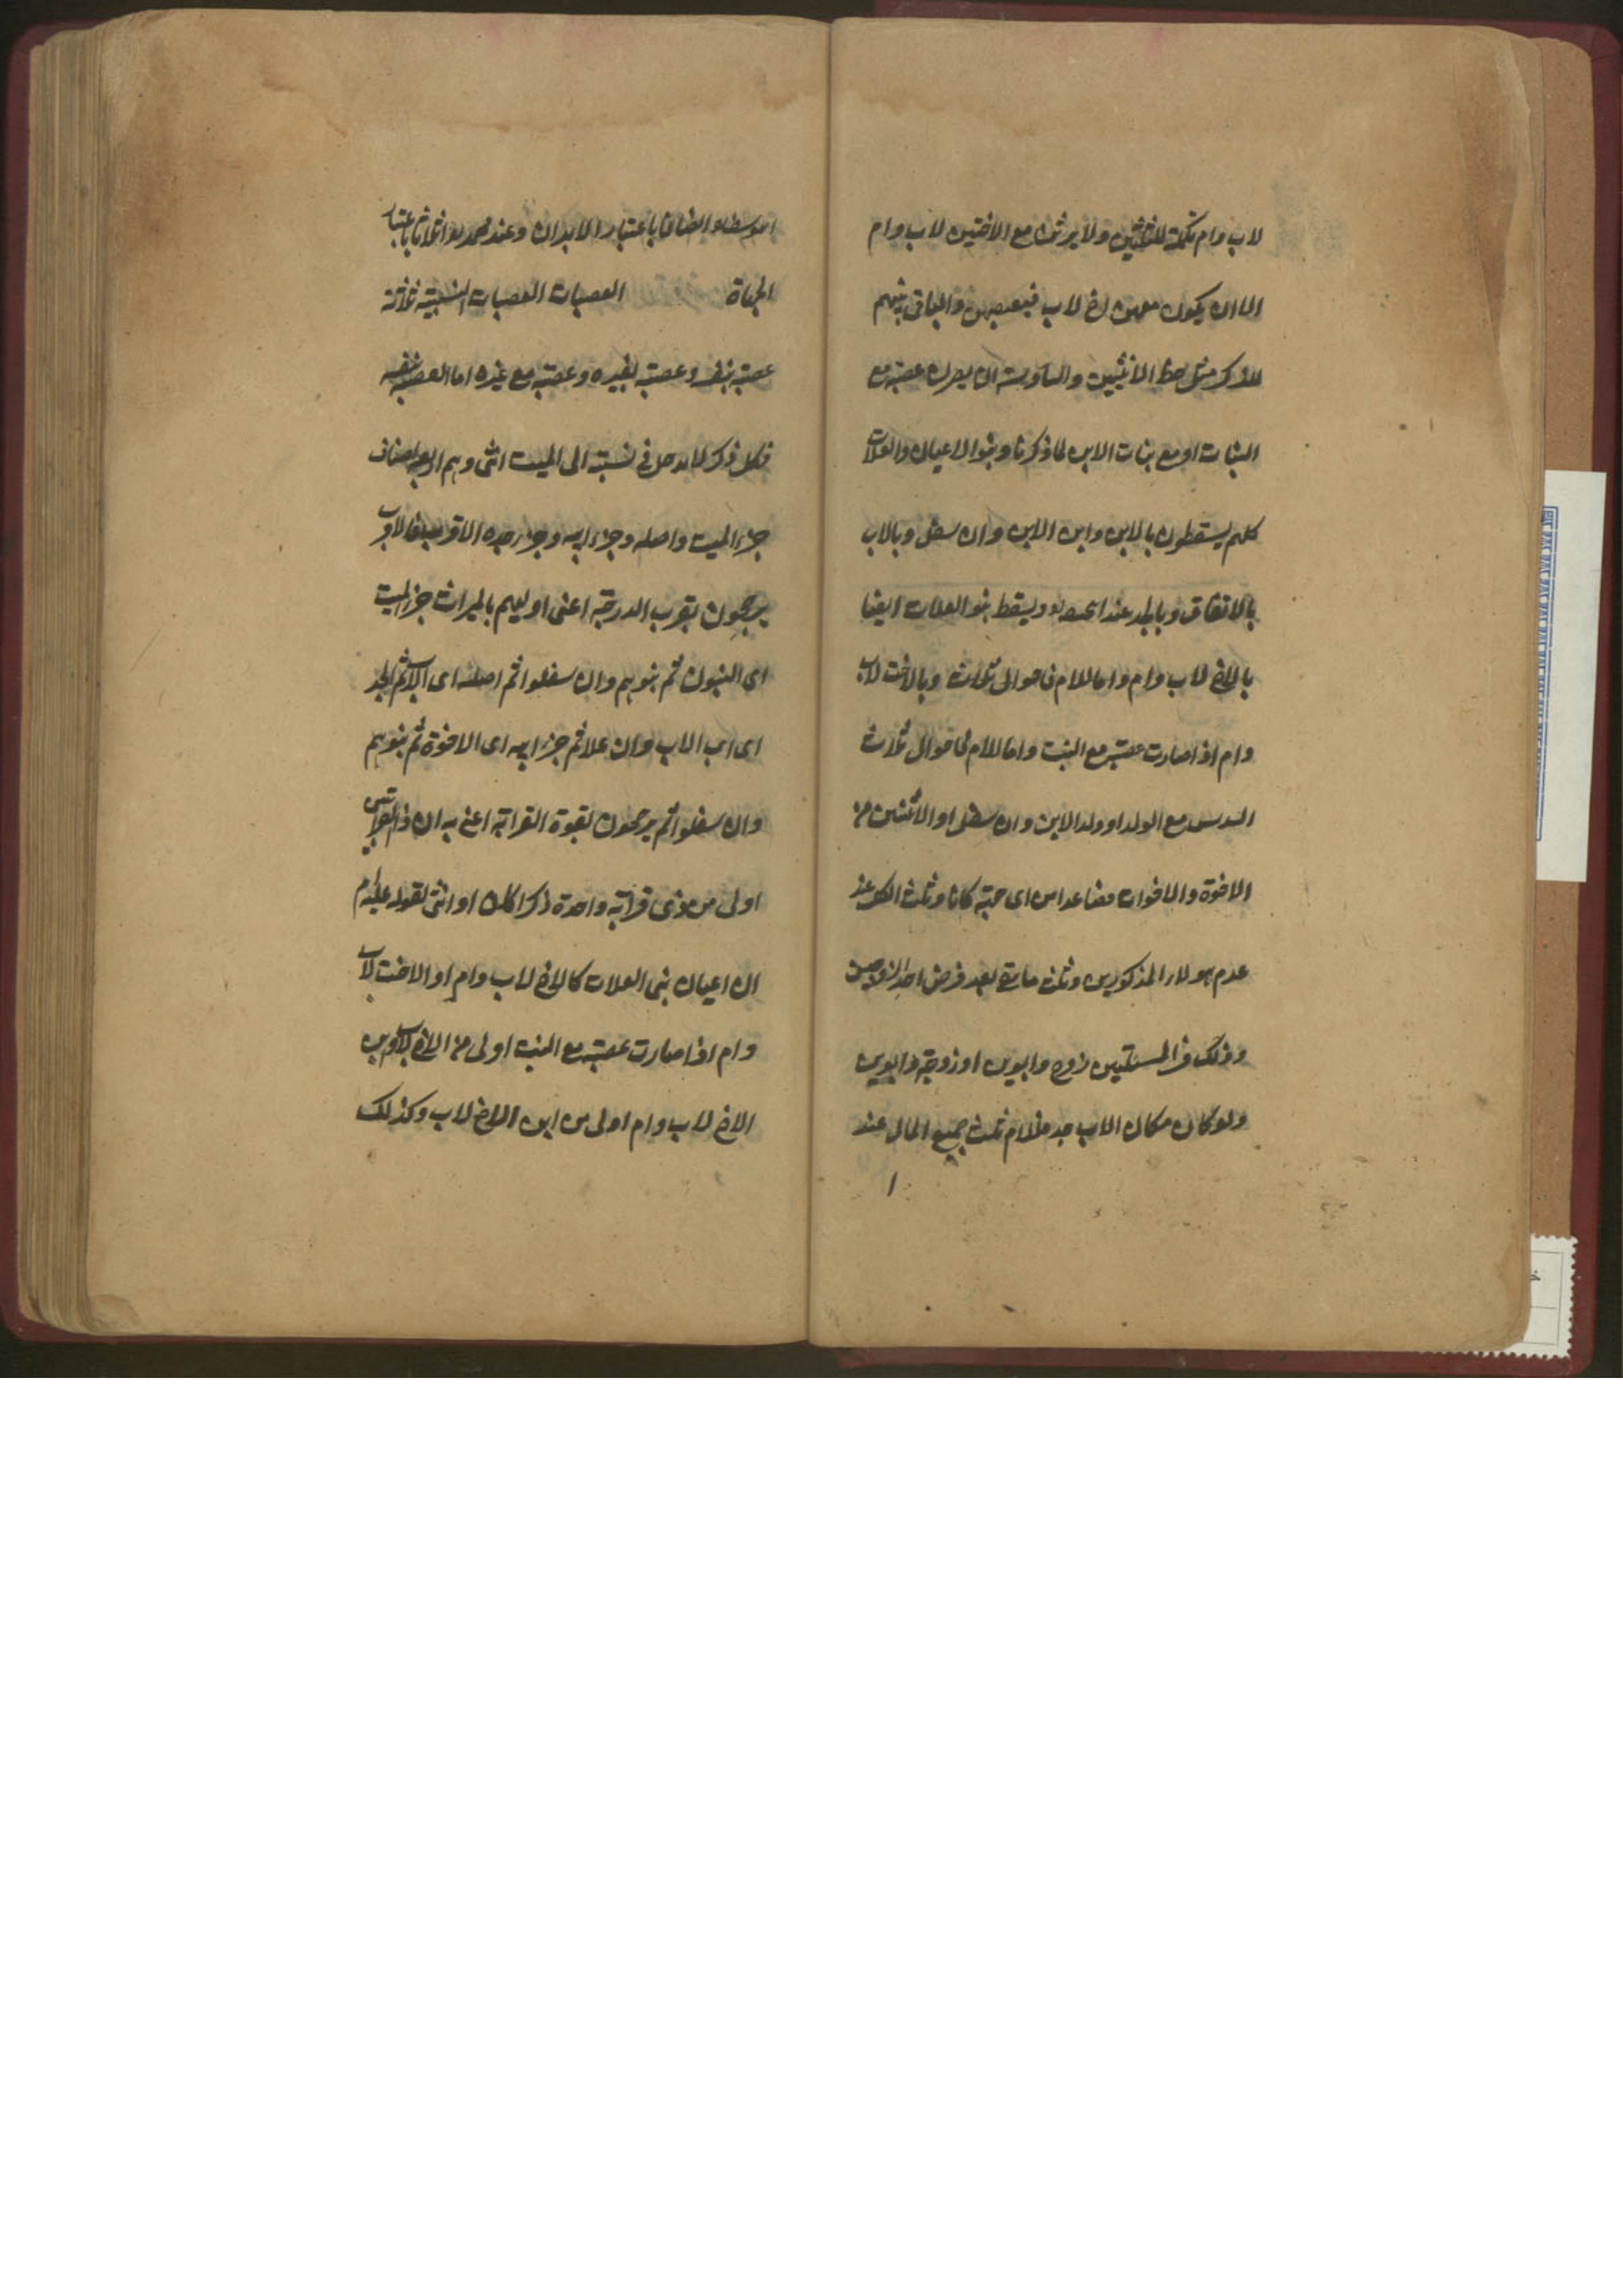 لاب وام تكملة للثلثين ولا يرثن مع الاختين لاب وام
الا ان يكون معهن اخ لاب فيعصبهن والباقى بينهم
للذكر مثل حظ الانثيين والسادسة ان يصرن عصبة مع
البنات او مع بنات الابن لما ذكرنا وبنوا الاعيان والعلات
كلهم يسقطون بالابن وابن الابن وان سفل وبالاب
بالاتفاق وبالجد عند ويسقط بنو العلات ايضا
بالاخ لاب وام واما للام فاحوال ثلاث وبالاخت لاب
وام اذا صارت عصبة مع البنت واما للام فاحوال ثلاث
السدس مع الولد او ولد الابن وان سفل او الاثنين من
الاخوة والاخوات فصاعدا من اى جهة كانا وثلث الكل عند
عدم هولاء المذكورين وثلث ما بقى بعد فرض احد الزوجين
وذلك فى المسئلتين زوج وابوين او زوجة وابوين
ولو كان مكان الاب جد فللام ثلث جميع المال عند
ا
انصافا باعتبار الابدان وعند محمد اثلاثا باعتبار
الجهاة العصبات العصبات النسبية ثلثة
عصبة بنفسه وعصبة لغيره وعصبة مع غيره اما العصبة بنفسه
فكل ذكر لا يدخل فى نسبته الى الميت انثى وهم اربعة اصناف
جزء الميت واصله وجزء ابيه وجزء جده الاقرب فالاقرب
يرجحون بقرب الدرجة اعنى اوليهم بالميراث جزء الميت
اى البنون ثم بنوهم وان سفلوا ثم اصله اى الاب ثم الجد
اى اب الاب وان علا ثم جزء ابيه اى الاخوة ثم بنوهم
وان سفلوا ثم يرجحون بقوة القرابة اعنى به ان ذا القرابتين
اولى من ذى قرابة واحدة ذكرا كان او انثى لقوله عليه م
ان اعيان بنى العلات كالاخ لاب وام او الاخت لاب
وام اذا صارت عصبة مع البنت اولى من الاخ لاب وابن
الاخ لاب وام اولى من ابن الاخ لاب وكذلك